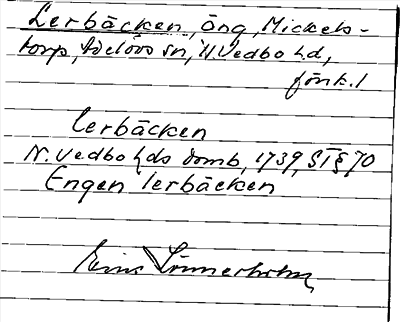 Lerbäcken, äng, Mickels-
torp, Adelövs sn, N. Vedbo hd,
Jönk. l
lerbäcken
N. Vedbo hds domb, 1739, ST § 70
Engen lerbäcken